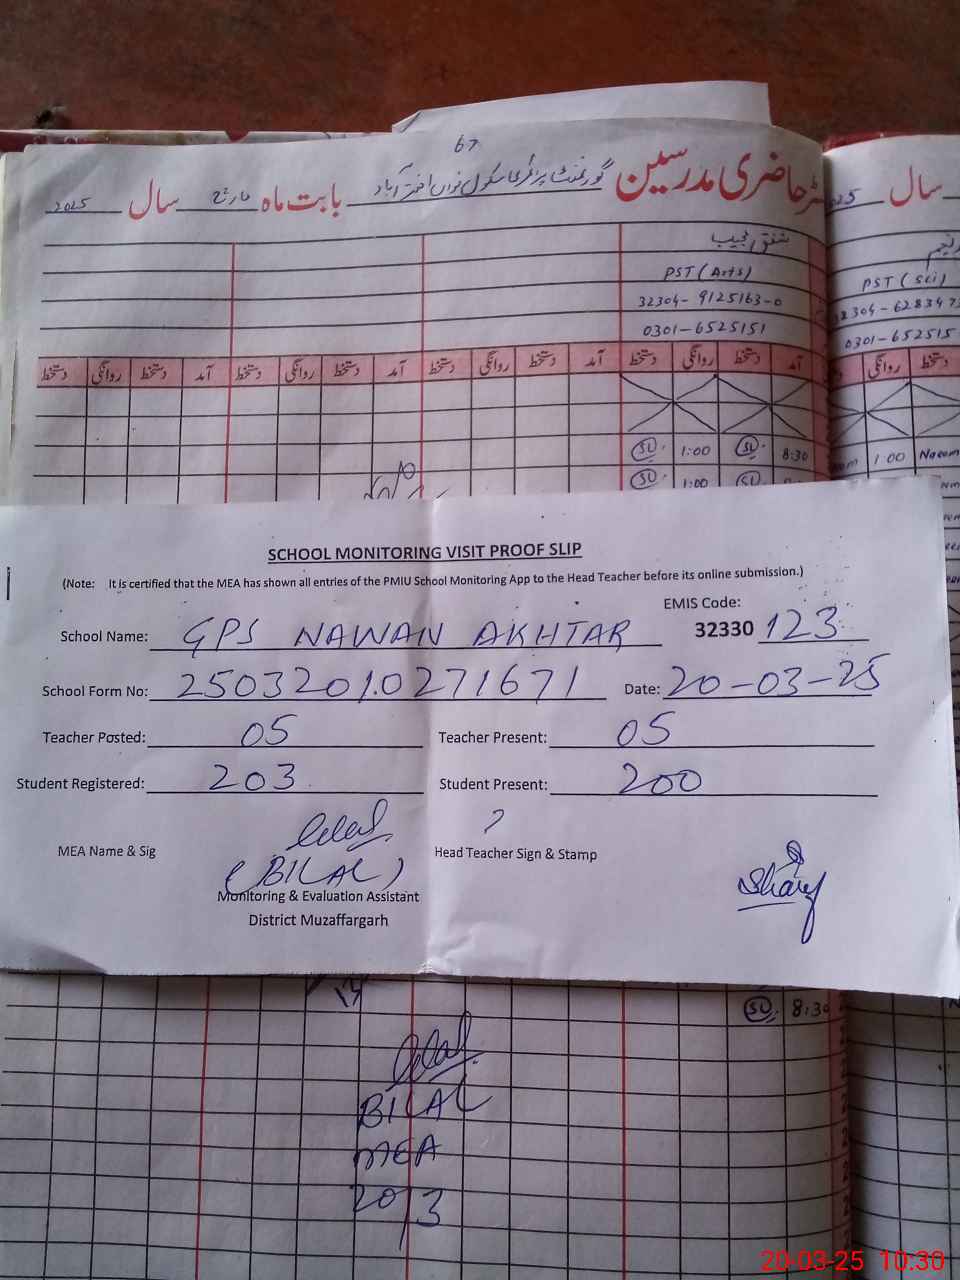 67
رجسٹر حاضری مدرسین گورنمنٹ پرائمری سکول نواں اختر آباد بابت ماہ مارچ سال 2025
025 سال
شفق مجیب
PST (Arts)
PST (Sci)
32304-9125163-0
32304-628347
0301-6525151
0301-652515
آمد دستخط روانگی دستخط آمد دستخط روانگی دستخط آمد دستخط روانگی دستخط آمد دستخط روانگی دستخط
دستخط روانگی
8:30 SU 1:00 SU
Naeem 1:00
SU 1:00 SU
SCHOOL MONITORING VISIT PROOF SLIP
(Note: It is certified that the MEA has shown all entries of the PMIU School Monitoring App to the Head Teacher before its online submission.)
EMIS Code:
School Name: GPS NAWAN AKHTAR 32330 123
School Form No: 25032010271671 Date: 20-03-25
Teacher Posted: 05 Teacher Present: 05
Student Registered: 203 Student Present: 200
MEA Name & Sig Bilal Head Teacher Sign & Stamp
(BILAL) Sharif
Monitoring & Evaluation Assistant
District Muzaffargarh
SU 8:30
Bilal
BILAL
MEA
20/3
20-03-25 10:30